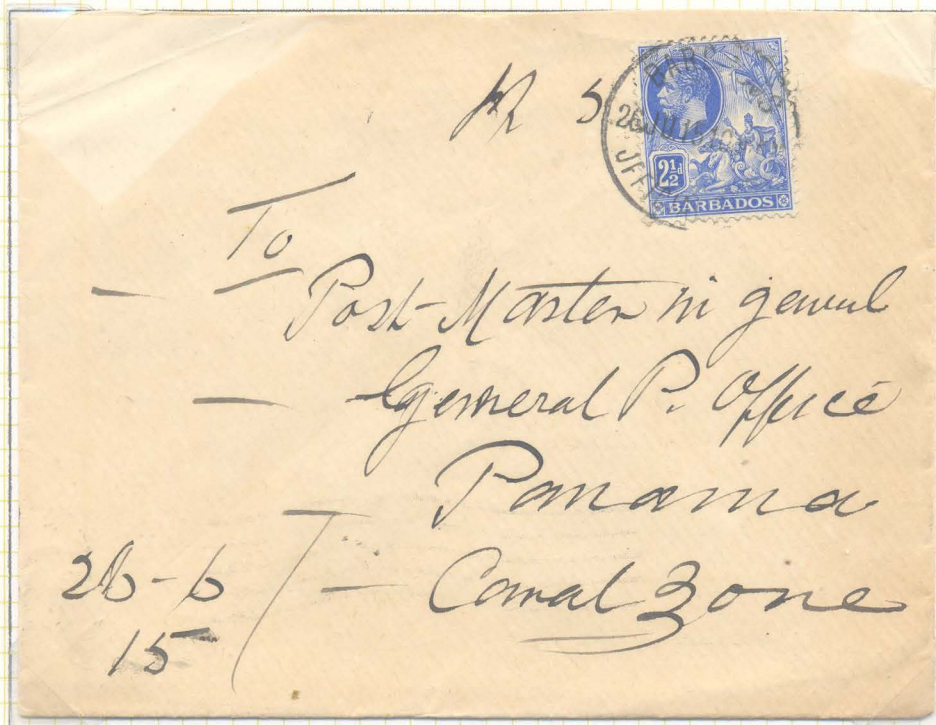 BARBADOS
26 JU 15
2½d
BARBADOS
To
Post-Master in general
General P. Office
Panama
Canal Zone
26-6
15